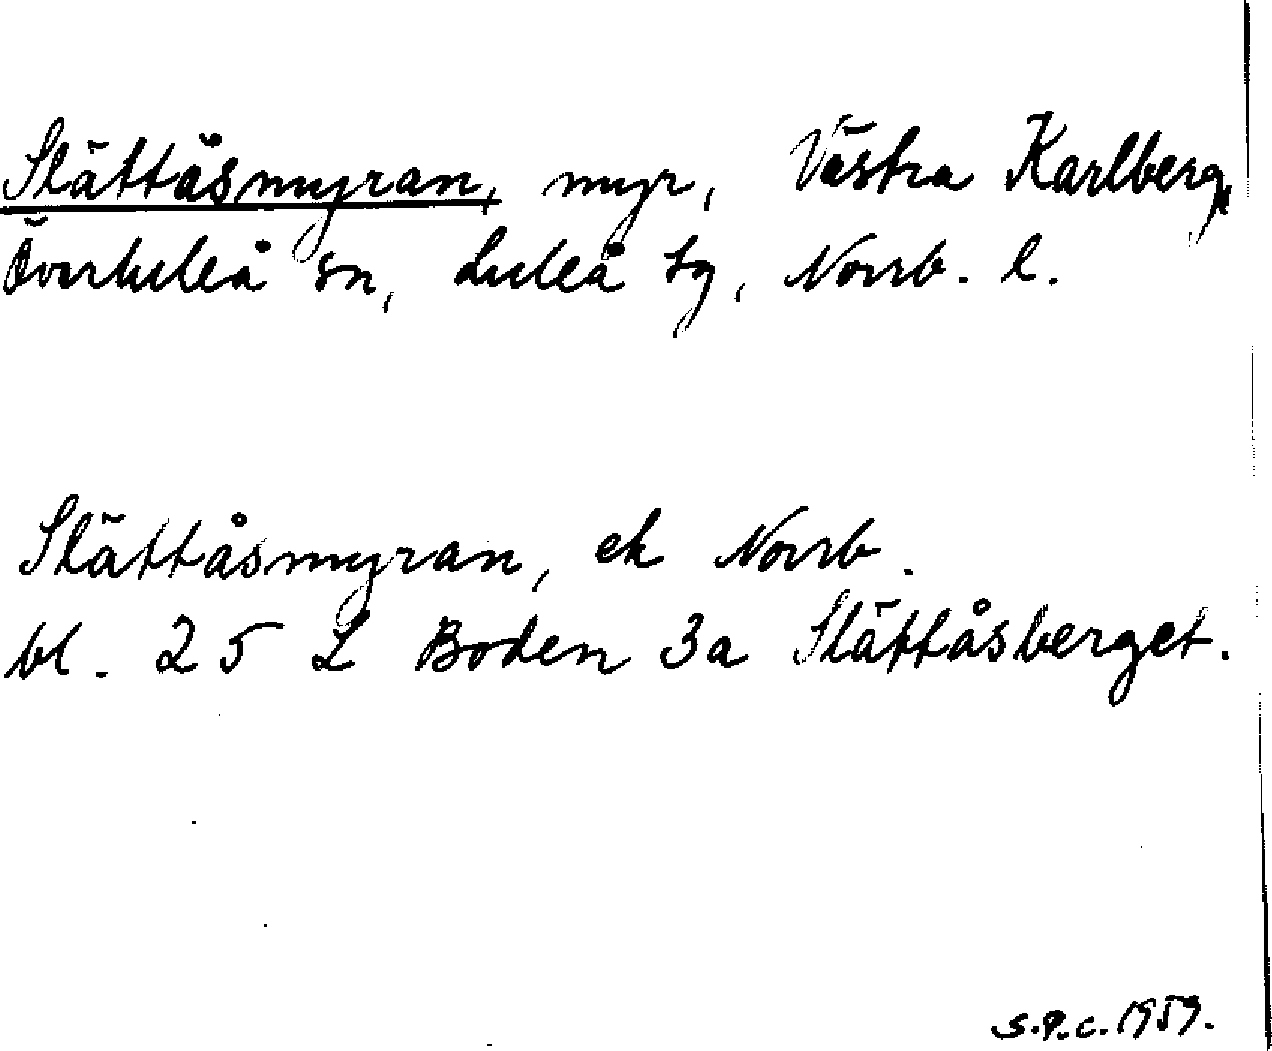 Slättåsmyran, myr, Västra Karlberg,
Överluleå sn, Luleå tg, Norrb. l.
Slättåsmyran, ek Norrb.
bl. 25 L Boden 3a Slättåsberget.
S.P.C. 1959.